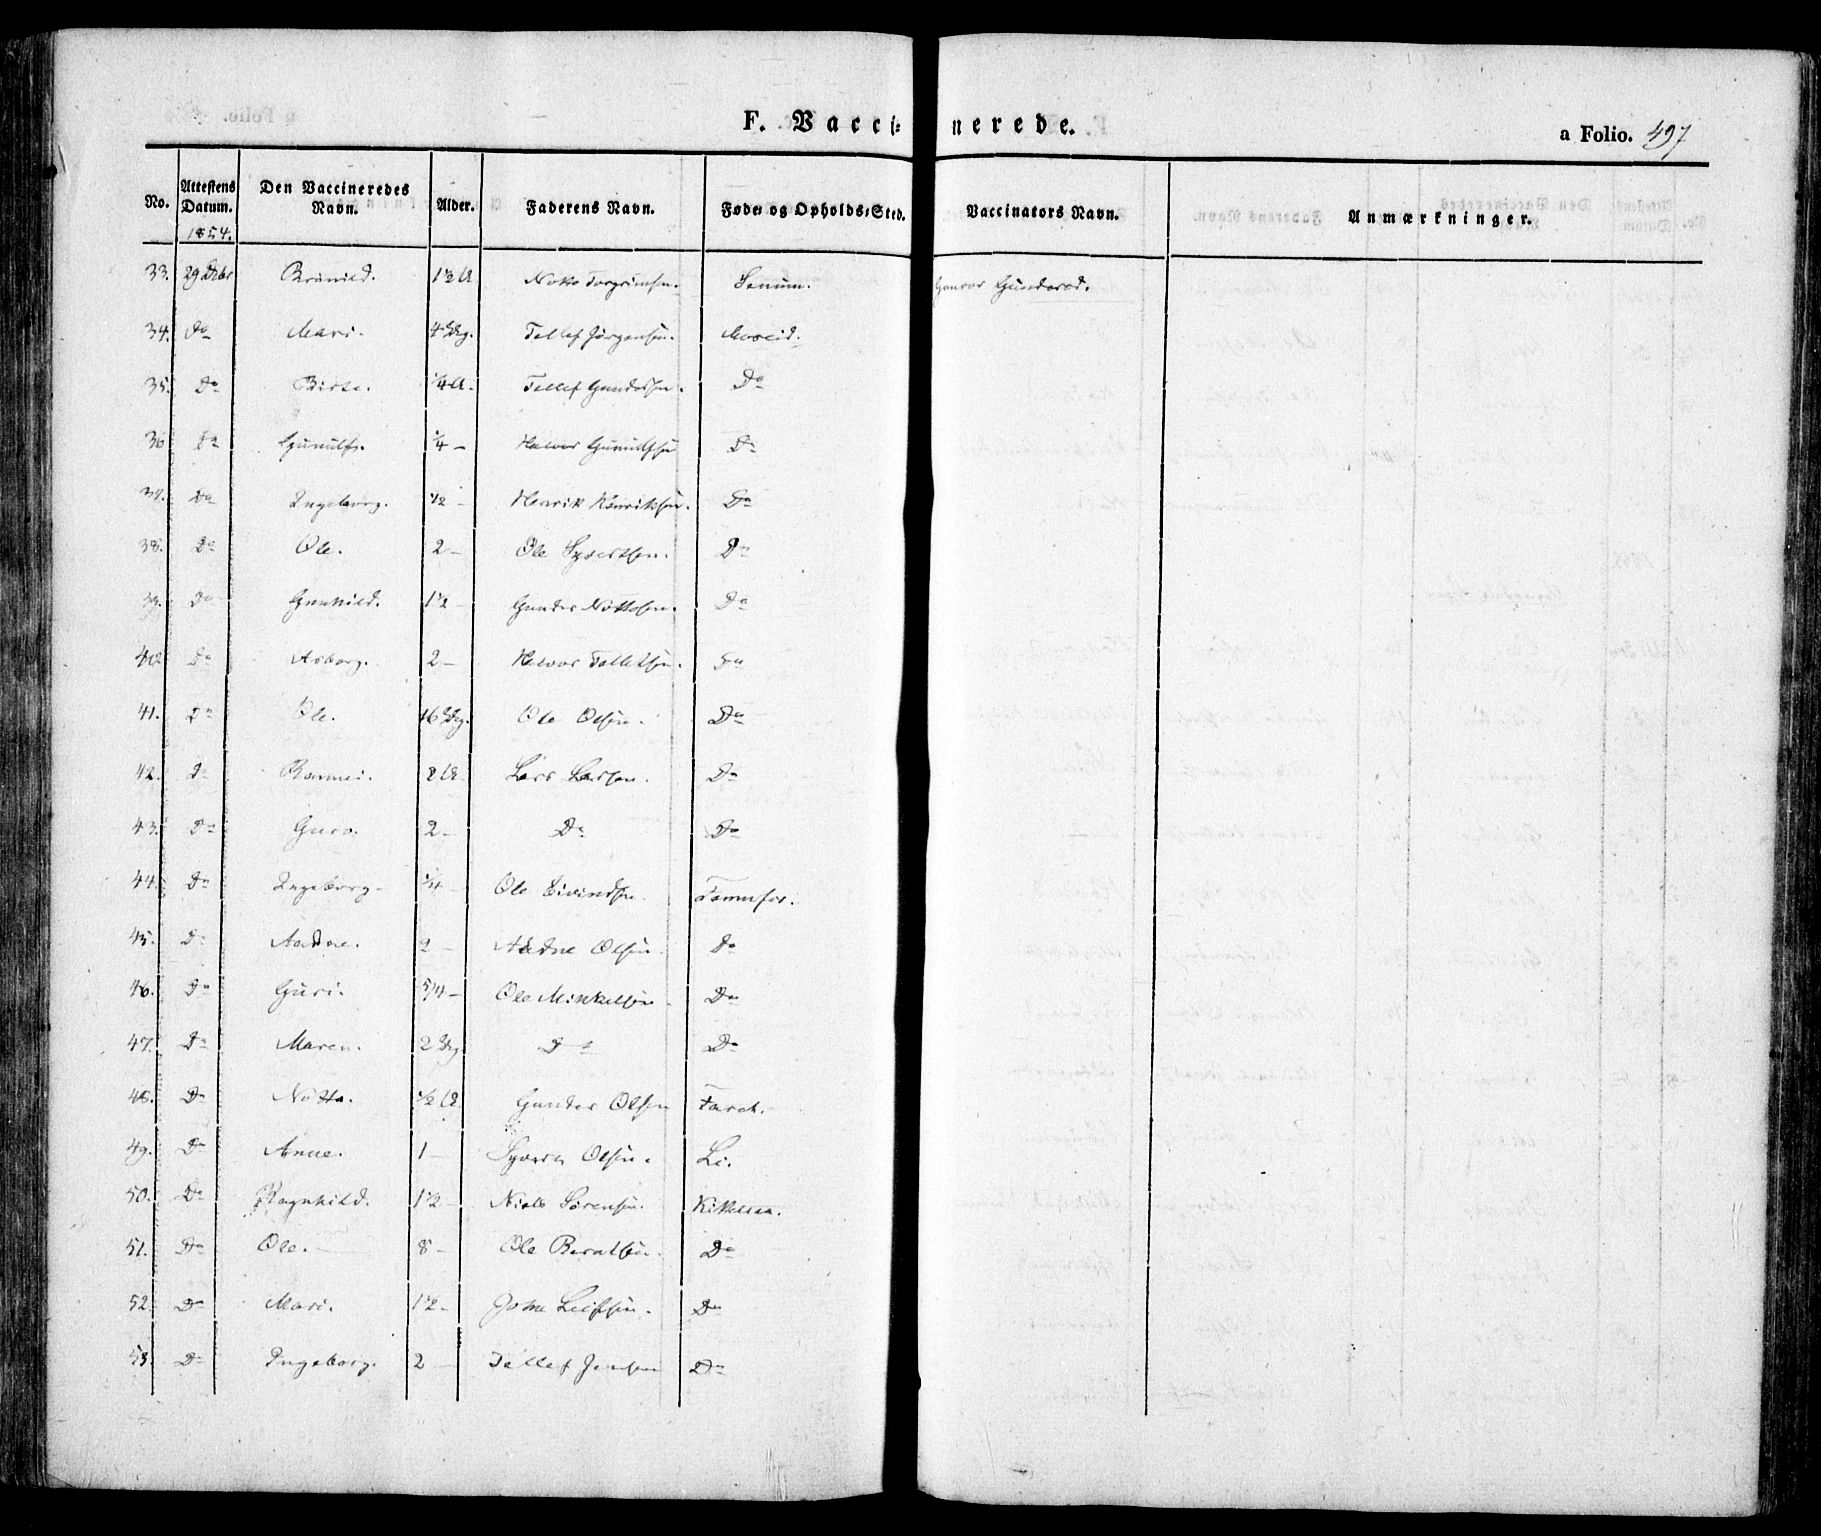 F. Vaccinerede.
a Folio. 497
No. Attestens Datum. Den Vaccineredes Navn. Alder. Faderens Navn. Føde- og Opholds-Sted. Vaccinators Navn. Anmærkninger.
1854.
33. 29 Dcbr 1½ A Notto Torgrimsen. Senum. Gunvor Gunderød.
34. Do Mari. Tellef Jørgensen. Moseid.
35. Do Birte. ¼ A. Tellef Gundersen. Do
36 Do Gunulf. ¼ - Halvor Gunulfsen Do
37. Do Ingeborg. ½ - Henrik Henriksen. Do
38. Do Ole. 2 - Ole Syvertsen. Do
39. Do Gunhild. 1½ - Gunder Nottosen. Do
40 Do Asborg. 2 - Halvor Tellefsen. Do
41. Do Ole. 16 Dg. Ole Olsen. Do
42. Do 2 A. Lars Larsen. Do
43. Do Guro. 2 - Do Do
44. Do Ingeborg. ¼ - Ole Eivindsen.
45. Do Aadne. 2 - Aadne Olsen. Do
46. Do Guri. 5/4 - Ole Mikkelsen. Do
47. Do Maren. 2 Dg Do Do
48. Do Notto. ½ A Gunder Olsen
49. Do Anne. 1 - Syvert Olsen. Li.
50. Do Ragnhild. 1½ - Niels Sørensen. Kittelsaa.
51. Do Ole. 8 - Ole Berntsen. Do
52. Do Mari. 1½ - John Leifsen. Do
53. Do Ingeborg. 2 - Tellef Jensen Do